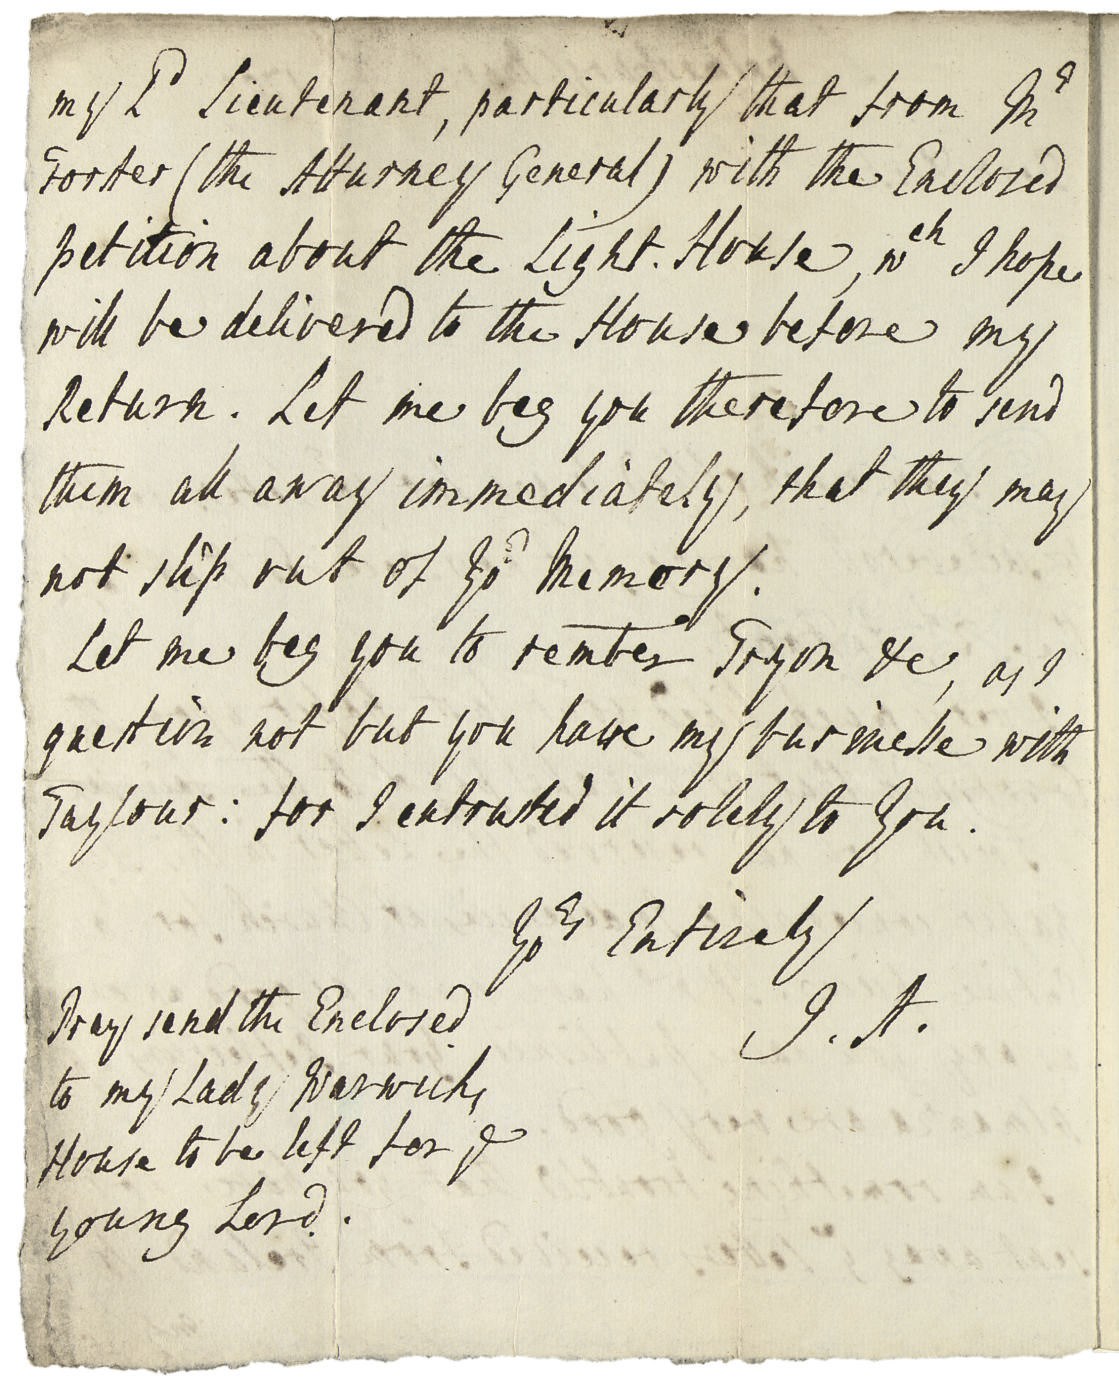 my Ld Lieutenant, particularly that from Mr
Forster (the Atturney General) with the Enclosed
petition about the Light-House, wch I hope
will be delivered to the House before my
Return. Let me beg you therefore to send
them all away immediately, that they may
not slip out of Yor Memory.
Let me beg you to rember Tryon &c, as I
question not but you have my businesse with
Taylour: for I entrusted it solely to You.
Yors Entirely
J. A.
Pray send the Enclosed
to my Lady Warwick's
House to be left for ye
young Lord.